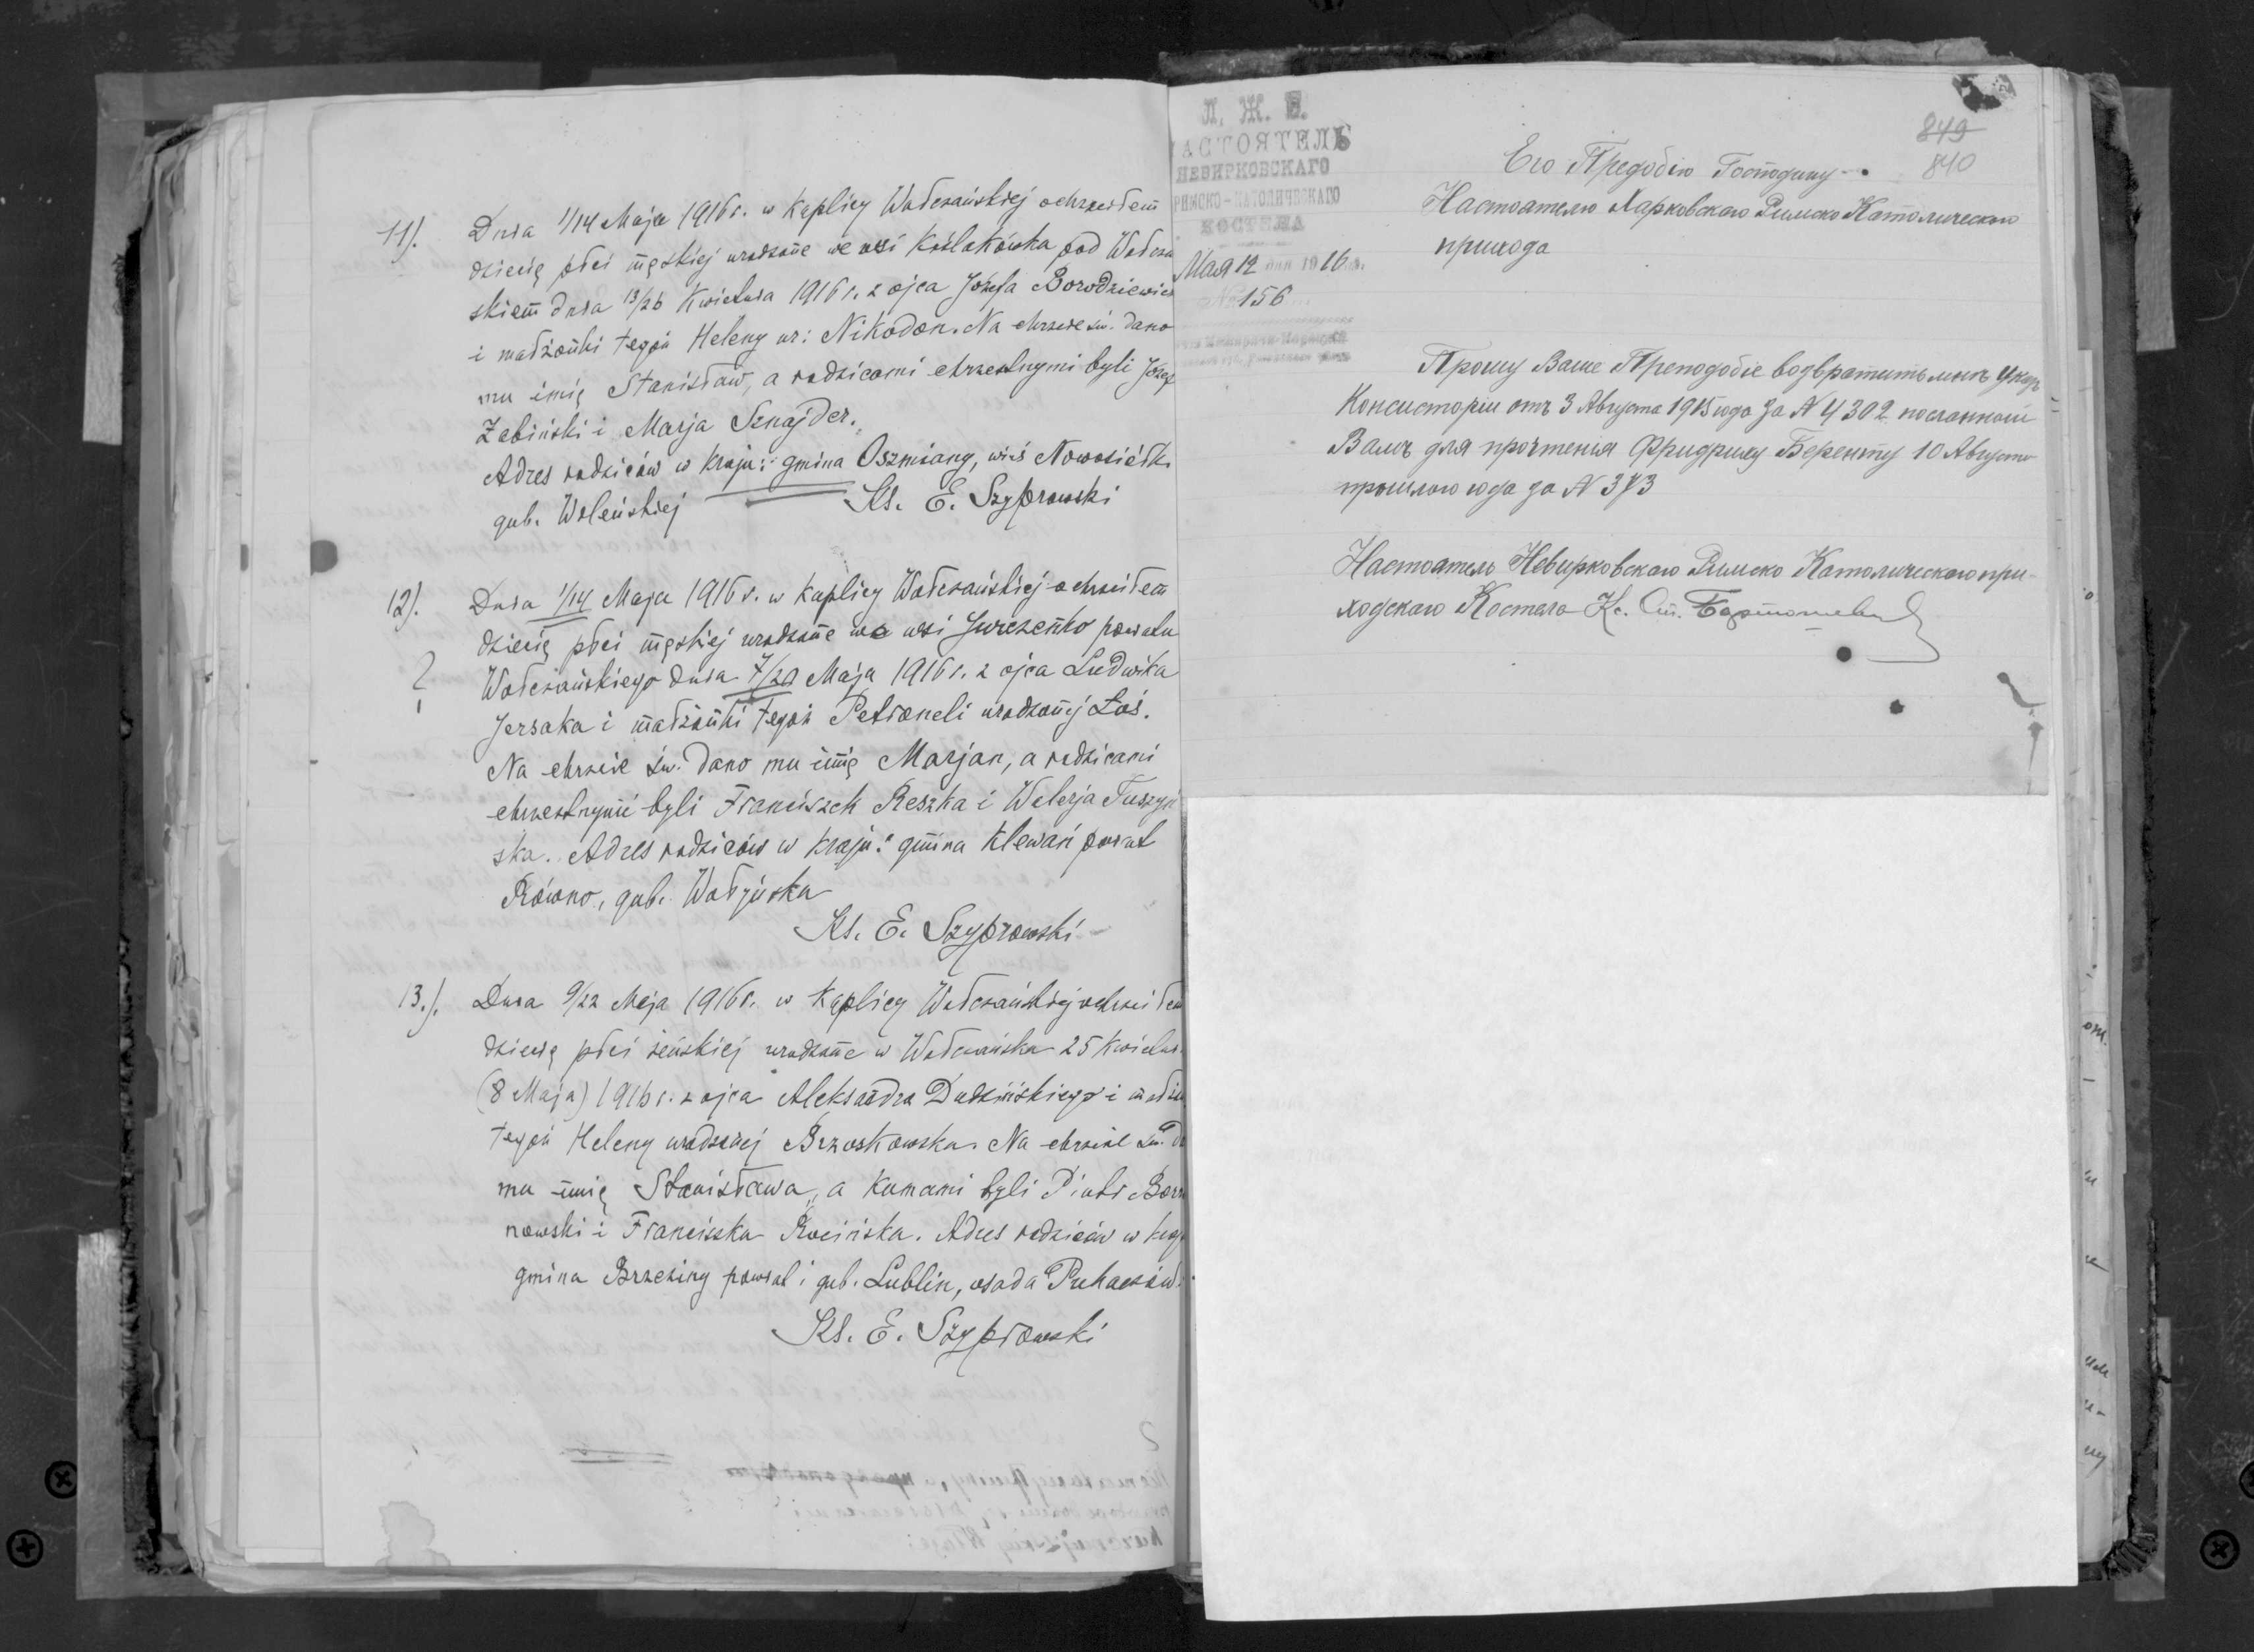 11).
Dnia 1/14 Maja 1916 r. w Kaplicy Wołczańskiej ochrzciłem
dziecię płci męskiej urodzone we wsi Koślakówka pod Wołczań
skiem dnia 13/26 Kwietnia 1916 r. z ojca Józefa Borodziewicz
i małżonki tegoż Heleny ur: Nikodon. Na chrzcie św. dano
mu imię Stanisław, a rodzicami chrzestnymi byli Józef
Żabiński i Marja Sznajder.
Adres rodziców w kraju: gmina Oszmiany, wieś Nowosiółki
gub. Wileńskiej
Ks. E. Szyprowski
12).
?
Dnia 1/14 Maja 1916 r. w kaplicy Wołczańskiej ochrzciłem
dziecię płci męskiej urodzone we wsi Jurczenko powiatu
Wołczańskiego dnia 7/20 Maja 1916 r. z ojca Ludwika
Jersaka i małżonki tegoż Petroneli urodzonej Łoś.
Na chrzcie św. dano mu imię Marjan, a rodzicami
chrzestnymi byli Franciszek Reszka i Walerja Tuszyń
ska. Adres rodziców w kraju: gmina Klewań powiat
Równo, gub. Wołyńska
Ks. E. Szyprowski
13.).
Dnia 9/22 Maja 1916 r. w Kaplicy Wołczańskiej ochrzciłem
dziecię płci żeńskiej urodzone w Wołczańsku 25 Kwietn
(8 Maja) 1916 r. z ojca Aleksandra Dudzińskiego i małżon
tegoż Heleny urodzonej Brzoskowska. Na chrzcie św. da
mu imię Stanisława, a kumami byli Piotr
nowski i Franciszka Rocińska. Adres rodziców w kraju
gmina Brzeziny powiat i gub. Lublin, osada Puhaczów.
Ks. E. Szyprowski
Л. Ж. Е.
НАСТОЯТЕЛЬ
НЕВИРКОВСКАГО
РИМСКО-КАТОЛИЧЕСКАГО
КОСТЕЛА
Мая 12 дня 1916 г.
№ 156
849
840
Его Предобію Господину
Настоятелю Харковскаго Римско Католическаго
прихода
Прошу Ваше Преподобіе возвратить мнѣ Указъ
Консисторіи отъ 3 Августа 1915 года за N 4302 посланный
Вамъ для прочтенія Фридриху Беренту 10 Августа
прошлаго года за N 373
Настоятель Невирковскаго Римско Католическаго при-
ходскаго Костела Кс. Ст. Бартошевичъ